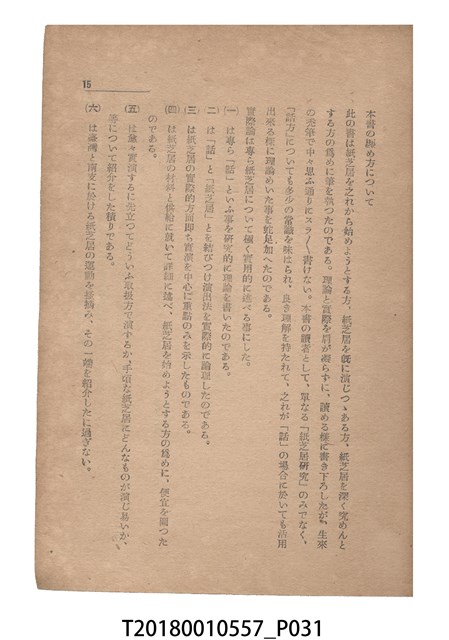 本書の纒め方について
此の書は紙芝居を之れから始めようとする方、紙芝居を既に演じつゝある方、紙芝居を深く究めんと
する方の爲めに筆を執つたのである。理論と實際を肩が凝らずに、讀める樣に書き下ろしたが、生來
の禿筆で中々思ふ通りにスラ〳〵書けない。本書の讀者として、單なる「紙芝居硏究」のみでなく、
「話方」についても多少の常識を味はられ、良き理解を持たれて、之れが「話」の場合に於いても活用
出來る樣に理論めいた事を蛇足加へたのである。
實際論は專ら紙芝居について極く實用的に述べる事にした。
(一) は專ら「話」といふ事を硏究的に理論を書いたのである。
(二) は「話」と「紙芝居」とを結びつけ演出法を實際的に論理したのである。
(三) は紙芝居の實際的方面卽ち實演を中心に重點のみを示したものである。
(四) は紙芝居の材料と供給に就いて詳細に述べ、紙芝居を始めようとする方の爲めに、便宜を圖つた
のである。
(五) は愈々實演するに先立つてどういふ取扱方で演ずるか、手頃な紙芝居にどんなものが演じ易いか、
等について紹介をした積りである。
(六) は臺灣と南支に於ける紙芝居の運動を摘み、その一端を紹介したに過ぎない。
15
T20180010557_P031